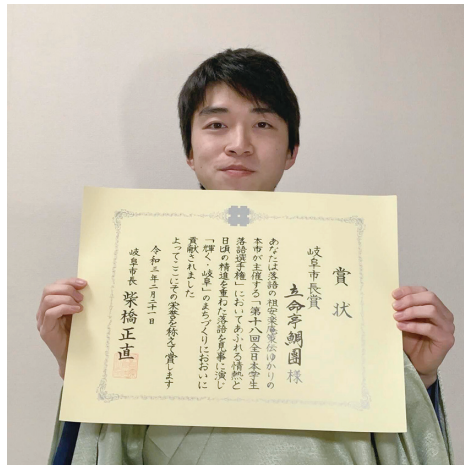 賞状
岐阜市長賞
立命亭鯛團様
あなたは落語の祖安楽庵策伝ゆかりの
本市が主催する「第十八回全日本学生
落語選手権」においてあふれる情熱と
日頃の精進を重ねた落語を見事に演じ
「輝く・岐阜」のまちづくりにおおいに
貢献されました
よってここにその栄誉を称えて賞します
令和三年二月二十一日
岐阜市長 柴橋正直